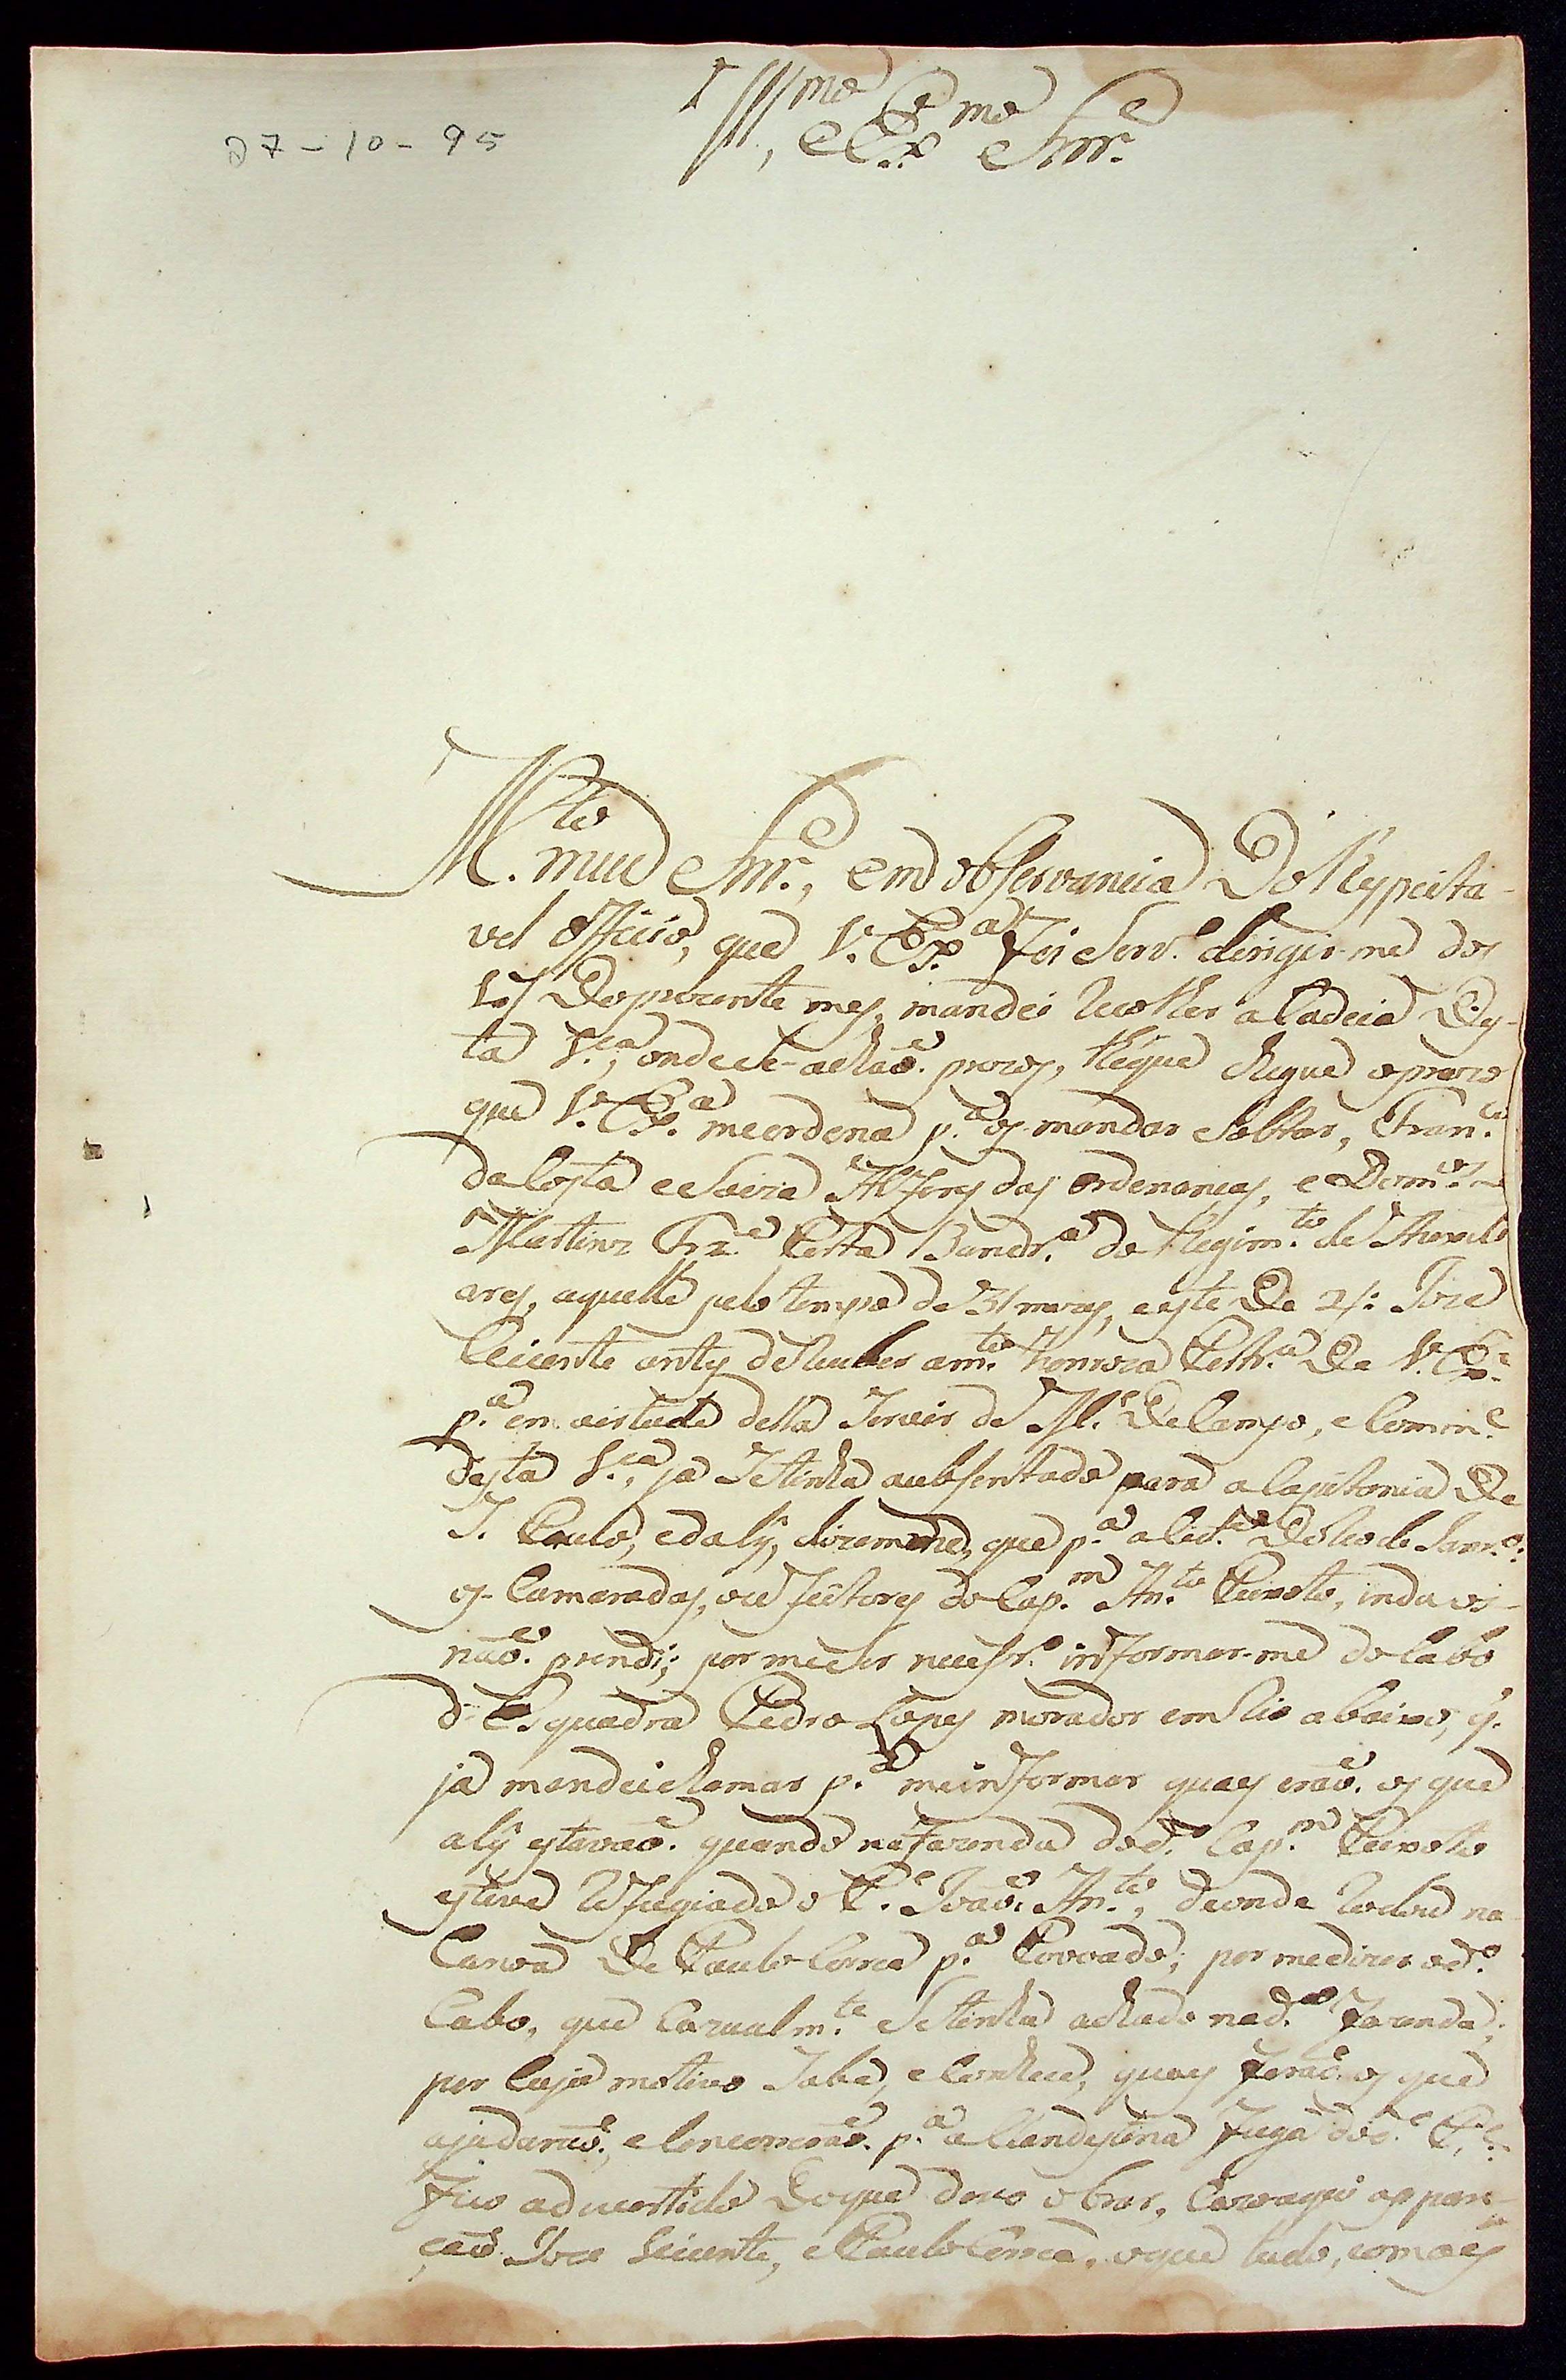 27-10-95
Ill.mo, e Ex.mo Snr.e
M.to meu Snr.e, em observancia Do Respeita-
vel officio, que V. Ex.a foi Serv.o dirigir-me dos
17 Do prezente mes, mandei Recolher a Cadeia Des-
ta V.ca, onde se-achaõ. prezos, thé que chegue o prazo
que V. Ex.a me ordena p.a os mandar Soltar, Fran.co
da Costa e Alferes das ordenancas, e Dom.os
Martins Frz.e Porta Bandr.a do Regim.to de
ares, aquelle pelo tempo de 3 / mezes, e este De 2 /: Joze
Vicente antes de Receber a m.to honroza Portr.a De V. Ex.a
p.a em virtude della Servir de M.e De Campo, e Comm.e
desta V.ca, ja Se tinha aubsentado para a Capitania De
S. Paulo, e daly, dizem-me, que p.a a Cid.e Do Rio de Janr.o:
os Camaradas, ou feitores do Cap.m An.to Peixoto, inda os-
naõ. prendi; por me ser necessr.o informar-me do Cabo
d'Esquadra Pedro Lopes morador em Rio abaixo, q.
ja mandei chamar p.a me informar quaes eraõ. os que
aly estavaõ. quando na fazenda do d.o Cap.m Peixoto
esteve Refugiado o P.e Joaõ. An.to, deonde Rodou na
Canoa De Paulo Correa p.a Povoado; por me dizer o d.o
Cabo, que Cazualm.te Se tinha achado na d.a fazenda;
por Cujo motivo Sabe, e Conhece, quaes foraõ. os que
ajudaraõ., e Concorreraõ. p.a a Clandestina fuga do d.o P.e:
fico advertido Do que devo obrar, Cazo aqui appare-
çaõ. Joze Vicente, e Paulo Correa, o que tudo, como es